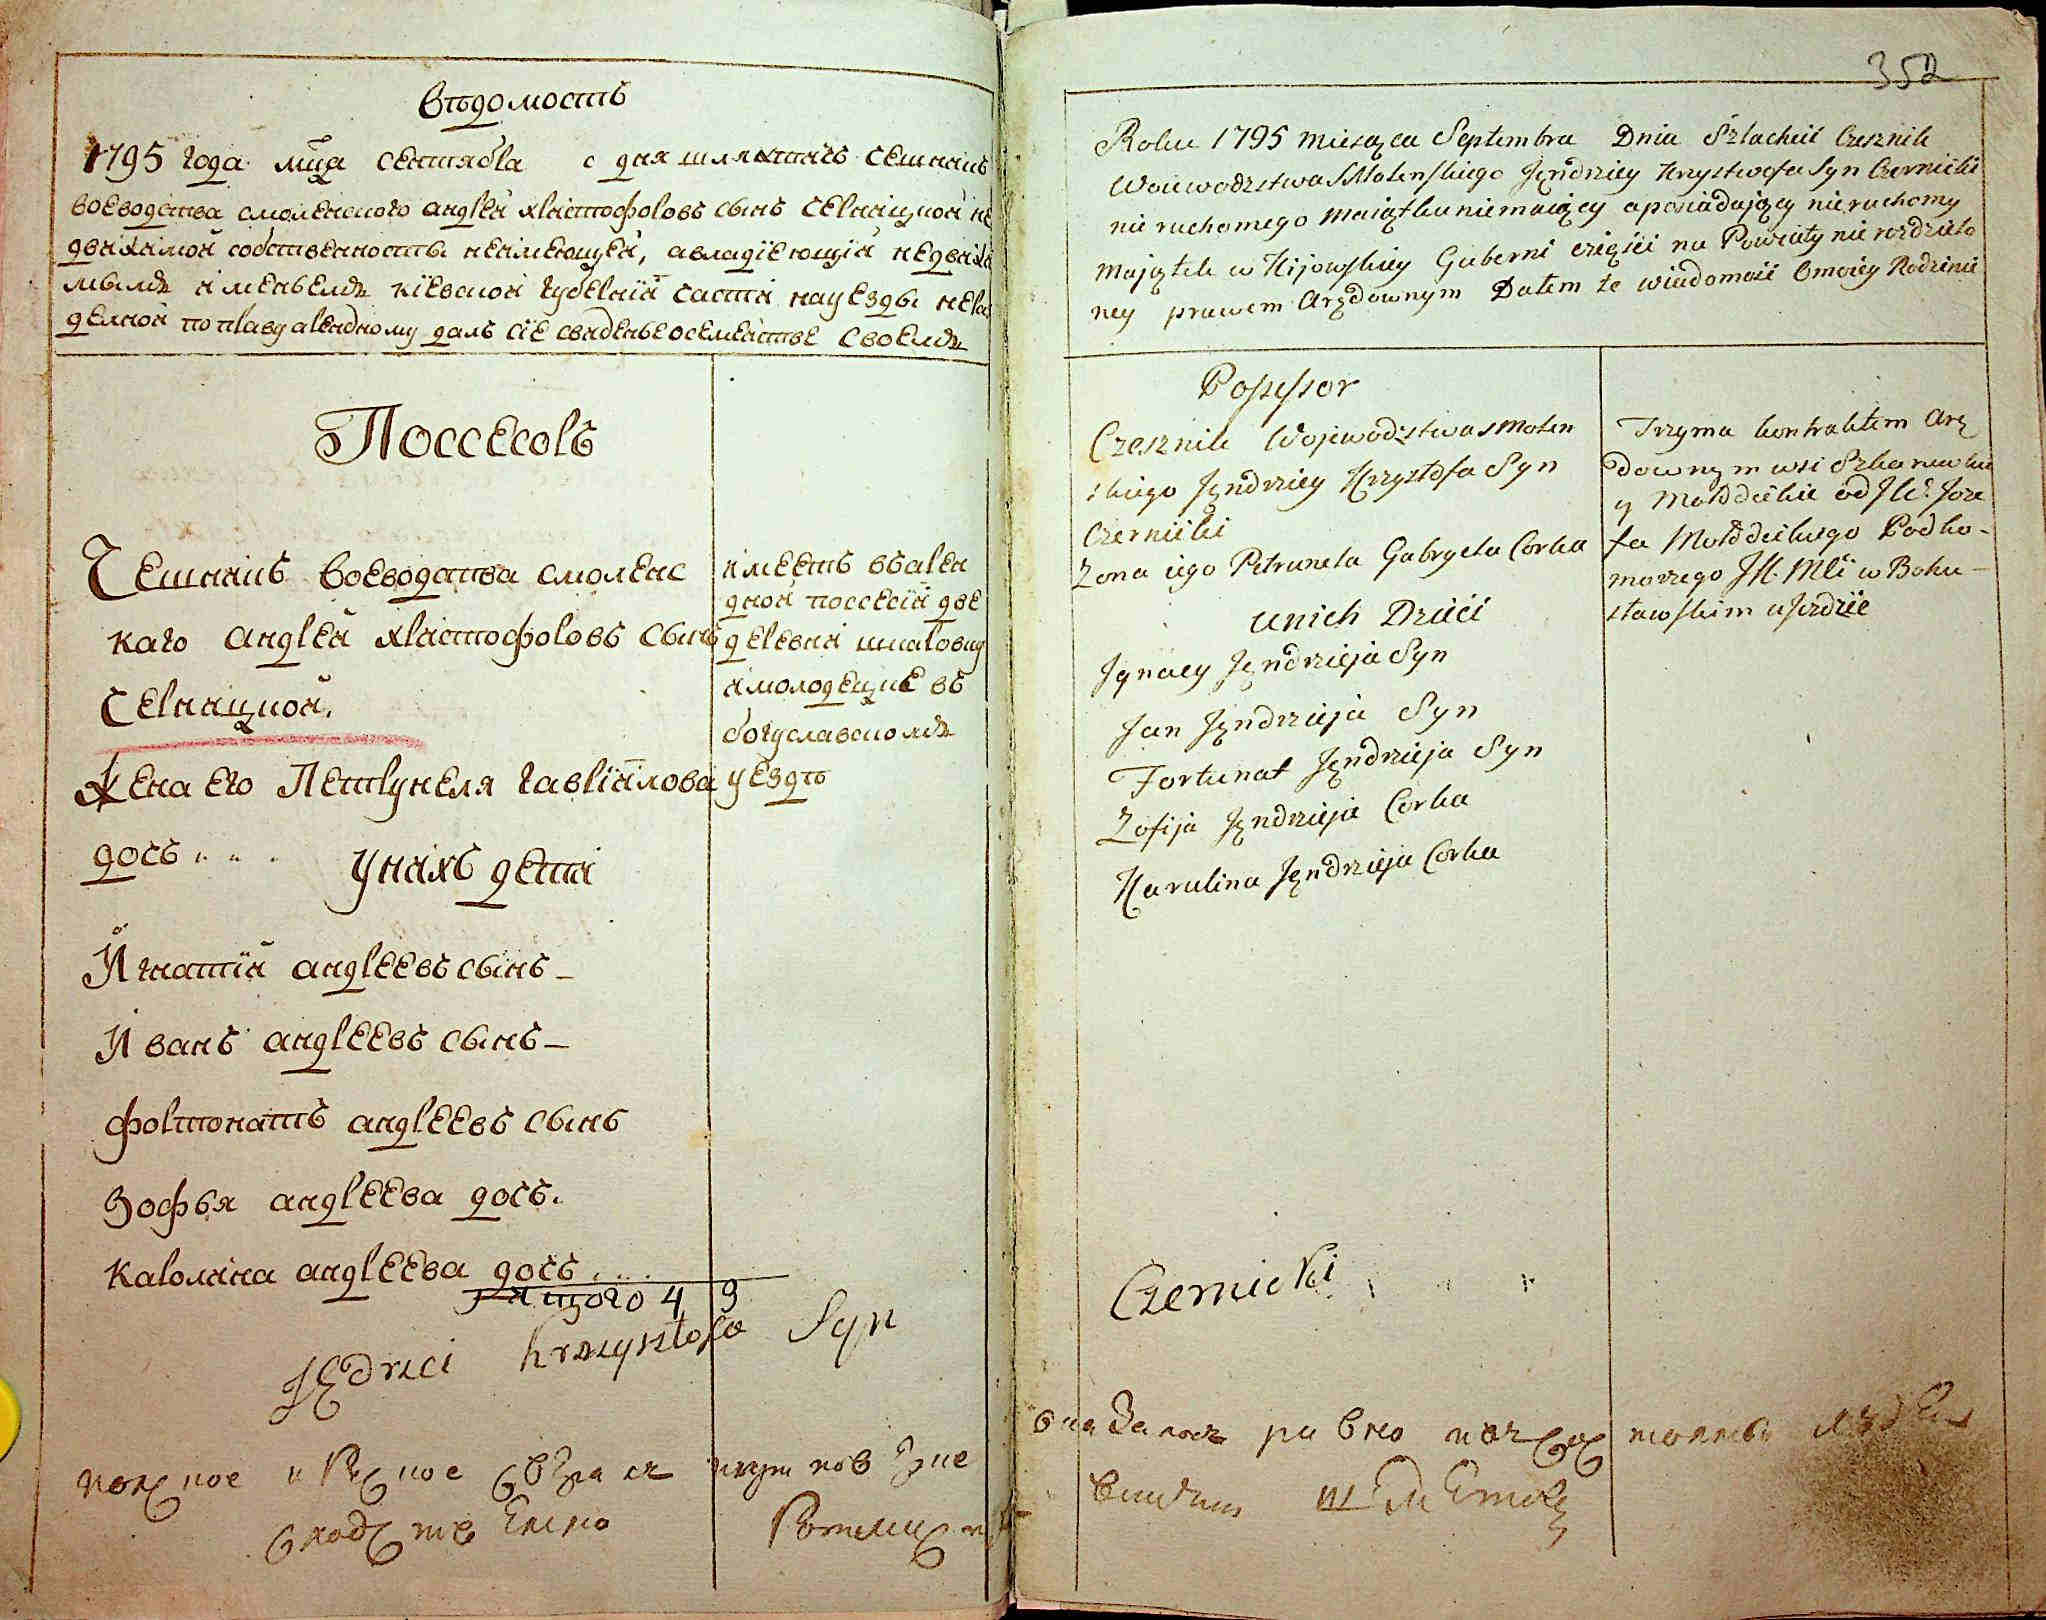 Вѣдомость
1795 года мца сентября дня шляхтичъ чешникъ
воеводства смоленского андрей христофоровъ сынъ черницкой не
движимой собственности неимеющей, авладіеющій недвижи
мымъ именьемъ кіевской губерніи части науезды нераз
делной поправу арендному далъ сіе сведеніе осемействе своемъ
Поссесоръ
Чешникъ воеводства смоленс
каго андрей христофоровъ сынъ
Черницкой.
Жена его Петрунеля гавріилова
дочь
унихъ дети
Игнатій андреевъ сынъ
Иванъ андреевъ сынъ
фортонатъ андреевъ сынъ
Зофья андреева дочь.
каролина андреева дочь
имеетъ въарен
дной поссесіи две
деревни шкаровку
имолодецкие въ
богуславскомъ
уездѣ
итого 4 3
Jędrzei Krzysztofa Syn
352
Roku 1795 miesąca Septembra Dnia Szlachcic Czesznik
Woiewodztwa SMolenskiego Jędrziey Krzysztofa Syn Czernicki
nie ruchomego maiątku niemaiący a posiadający nieruchomy
majątek w Kijowskiey Guberni części na Powiaty nie rozdzielo
ney prawem Arędownym Dałem te wiadomość Omoiey Rodzinie
Possessor
Czesznik Wojewodztwa SMolen
skiego Jędrziey Krzysztofa Syn
Czernicki
Zona iego Petrunela Gabryela Corka
unich Dzieci
Jgnacy Jędrzieja Syn
Jan Jędrzieja Syn
Fortunat Jędrzieja Syn
Zofija Jędrzieja Corka
Karulina Jędrzieja Corka
Trzyma kontraktem Arę
downym wsi Szkarawka
y Mołodeckie od JW. Joze
fa Mołodeckiego Podko-
morzego JK. Mci w Bohu-
sławskim ujezdzie
Czernicki